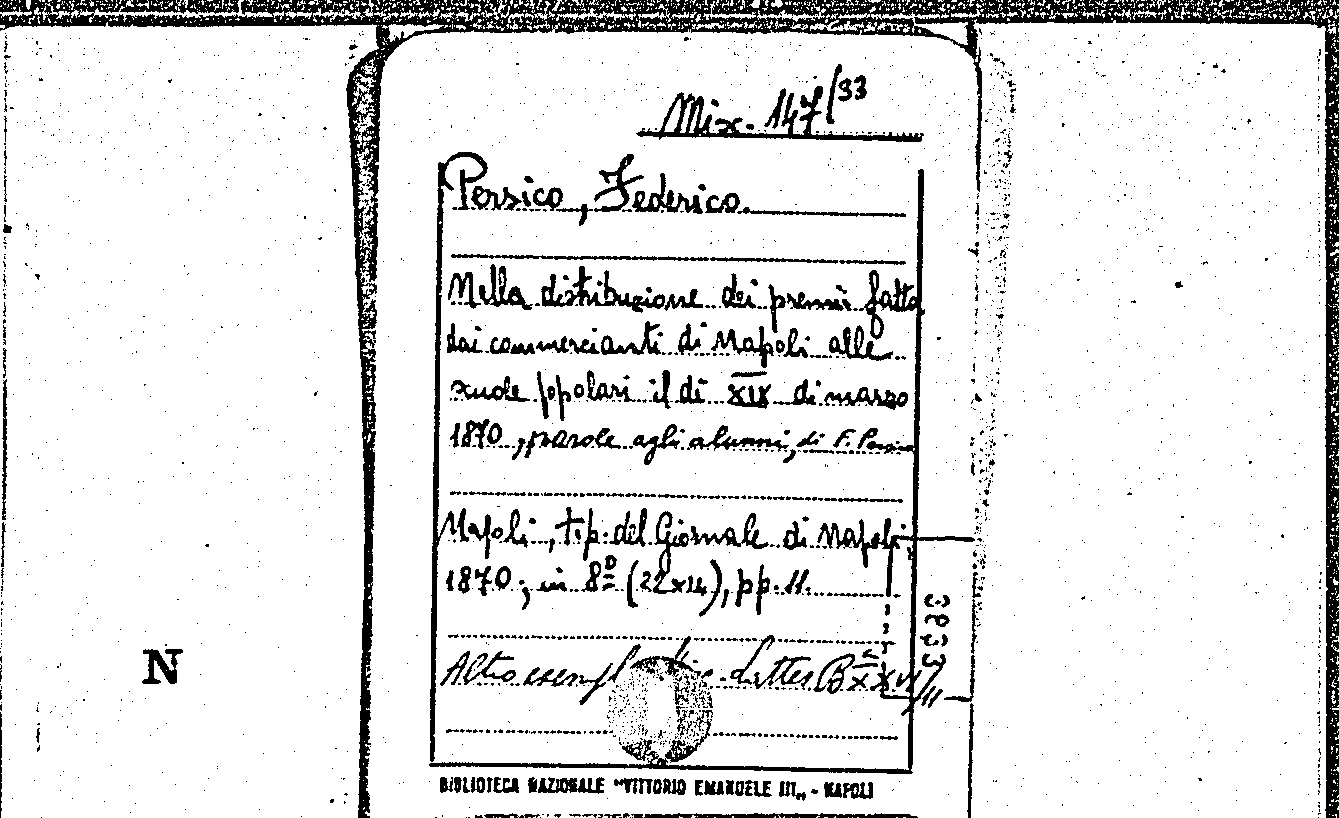 Mix. 147/33
Persico, Federico.
Nella distribuzione dei premii fatta
dai commercianti di Napoli alle
scuole popolari il di XIX di marzo
1870, parole agli alunni, di F. Persico
Napoli, tip. del Giornale di Napoli,
1870; in 8° (22x14), pp. 11.
3833
Altro
N
BIBLIOTECA NAZIONALE "VITTORIO EMANUELE III„ - NAPOLI